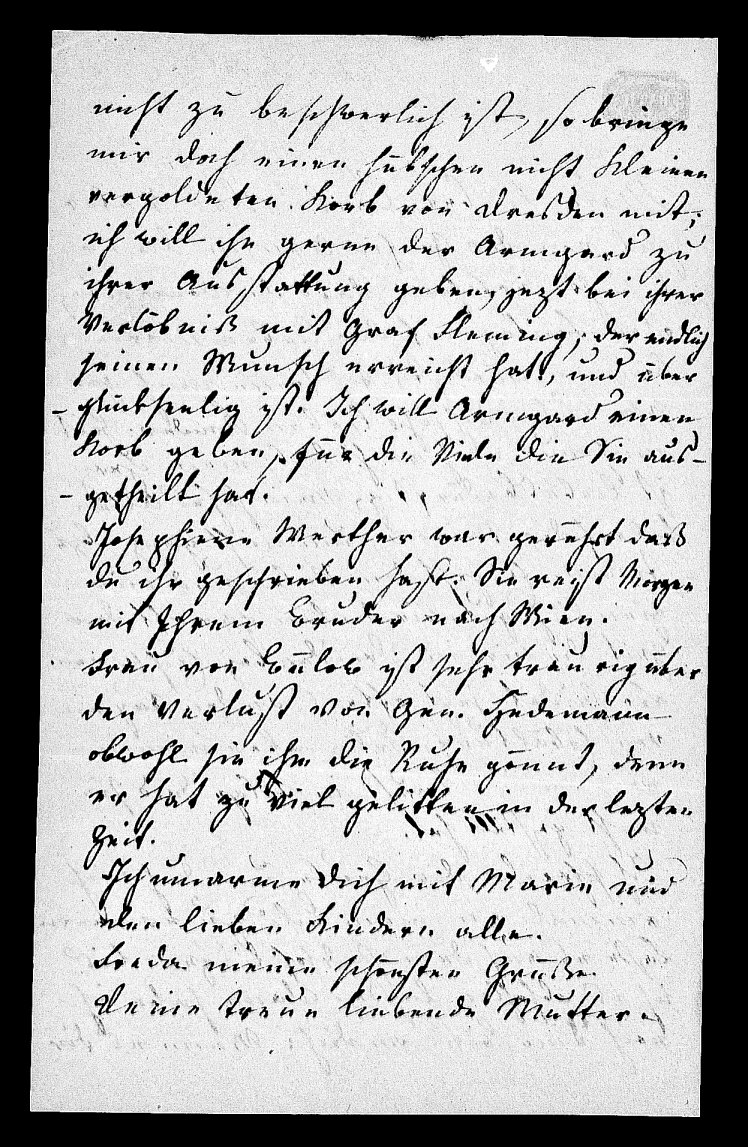 nicht zu beschwerlich ist, so bringe
mir doch einen hübschen nicht kleinen
vergoldeten Korb von Dresden mit;
ich will ihn gerne der Armgard zu
ihrer Ausstattung geben, jezt bei ihrer
Verlöbniß mit Graf Fleming, der endlich
seinen Wunsch erreicht hat, und über
glückseelig ist. Ich will Armgard einen
Korb geben, für die Viele die Sie aus-
getheilt hat.
Josephiene Werther war gerührt daß
du ihr geschrieben hast. Sie reist Morgen
mit Ihrem Bruder nach Wien.
Frau von Bülow ist sehr traurig über
den Verlust von Gen. Hedemann
obwohl sie ihm die Ruhe gönnt, denn
er hat zu viel gelitten in der lezten
Zeit.
Ich umarme Dich mit Marie und
den lieben Kindern alle.
Frieda meine schönsten Grüße.
Deine treue liebende Mutter.